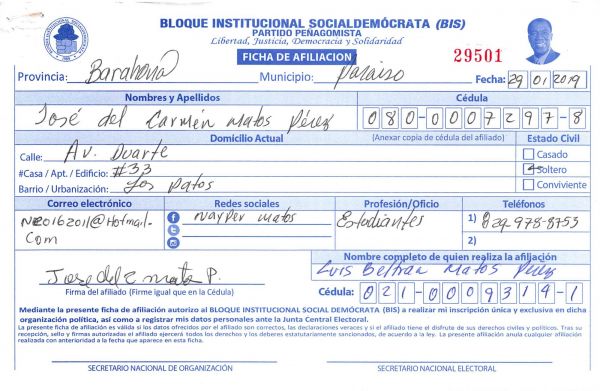 BLOQUE INSTITUCIONAL SOCIALDEMÓCRATA (BIS)
PARTIDO PEÑAGOMISTA
Libertad, Justicia, Democracia y Solidaridad
FICHA DE AFILIACION
29501
Provincia: Barahona Municipio: Paraiso Fecha: 29 01 2019
Nombres y Apellidos Cédula
José del Carmen Matos Pérez 080-0007297-8
Domicilio Actual (Anexar copia de cédula del afiliado) Estado Civil
Calle: Av. Duarte Casado
#Casa / Apt. / Edificio: #33 Soltero
Barrio / Urbanización: Los Patos Conviviente
Correo electrónico Redes sociales Profesión/Oficio Teléfonos
NR20162011@Hotmail- Nayper matos Estudiantes 1) 829-978-8753
Com 2)
Nombre completo de quien realiza la afiliación
Luis Beltran Matos Pérez
Jose del C matos P.
Firma del afiliado (Firme igual que en la Cédula) Cédula: 021-0009314-1
Mediante la presente ficha de afiliación autorizo al BLOQUE INSTITUCIONAL SOCIAL DEMÓCRATA (BIS) a realizar mi inscripción única y exclusiva en dicha
organización política, así como a registrar mis datos personales ante la Junta Central Electoral.
La presente ficha de afiliación es válida si los datos ofrecidos por el afiliado son correctos, las declaraciones veraces y si el afiliado tiene el disfrute de sus derechos civiles y políticos. Tras su
recepción, sello y firmas autorizadas el afiliado ejercerá todos los derechos y los deberes estatutariamente sancionados, de acuerdo a la ley. La presente afiliación anula cualquier afiliación
realizada con anterioridad a la fecha que aparece en esta ficha.
SECRETARIO NACIONAL DE ORGANIZACIÓN SECRETARIO NACIONAL ELECTORAL